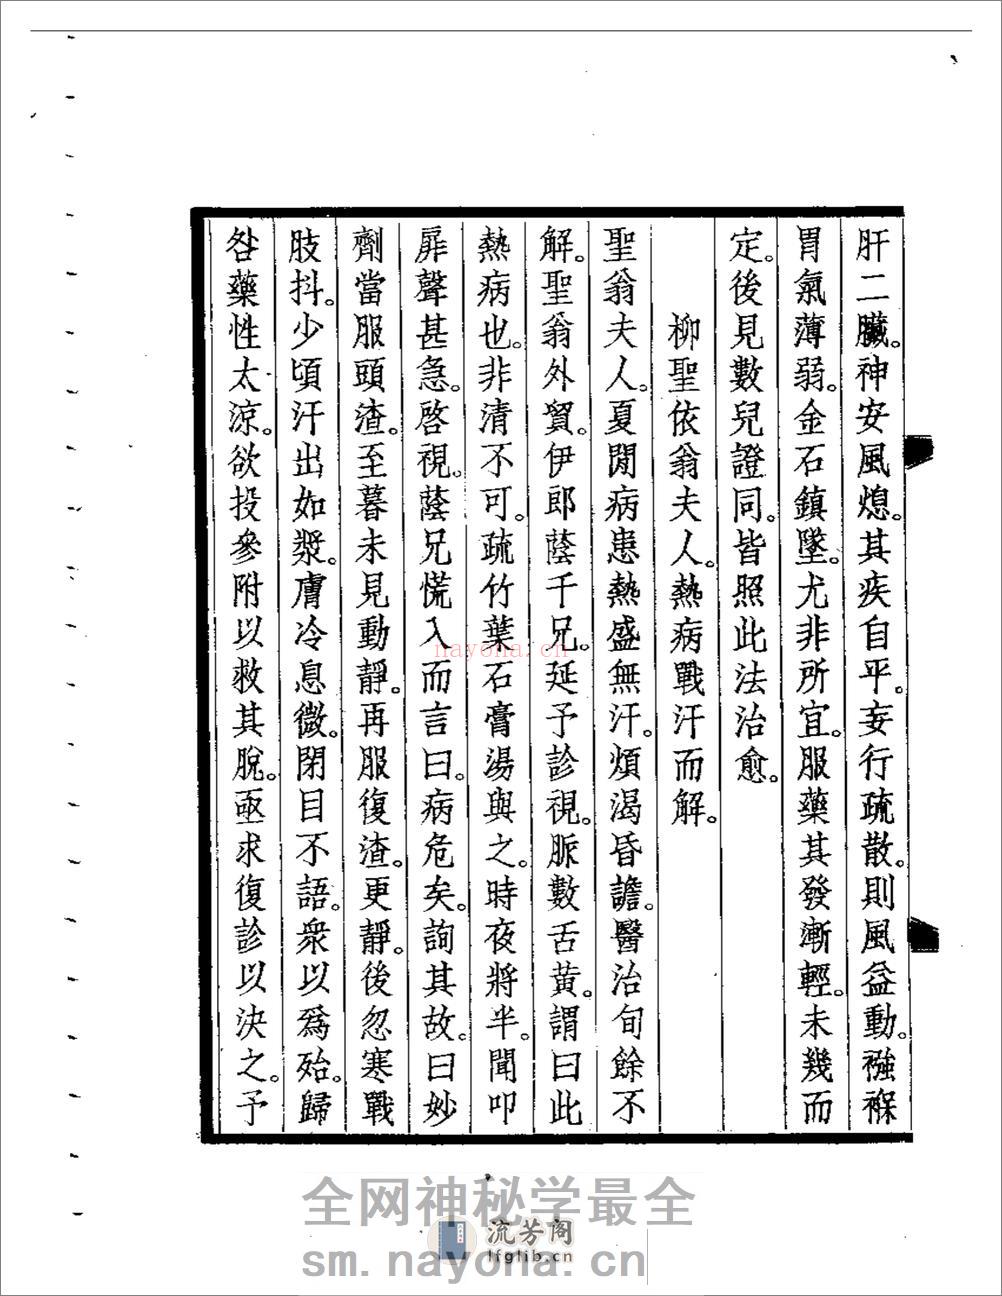 肝二臟。神安風熄。其疾自平。妄行疏散。則風益動。襁褓
胃氣薄弱。金石鎮墜。尤非所宜。服藥其發漸輕。未幾而
定。後見數兒證同。皆照此法治愈。
柳聖依翁夫人。熱病戰汗而解。
聖翁夫人。夏閒病患熱盛無汗。煩渴昏譫。醫治旬餘不
解。聖翁外貿。伊郎蔭千兄。延予診視。脈數舌黃。謂曰此
熱病也。非清不可。疏竹葉石膏湯與之。時夜將半。聞叩
扉聲甚急。啓視。蔭兄慌入而言曰。病危矣。詢其故。曰妙
劑當服頭渣。至暮未見動靜。再服復渣。更靜。後忽寒戰
肢抖。少頃汗出如漿。膚冷息微。閉目不語。衆以爲殆。歸
咎藥性太涼。欲投參附以救其脫。亟求復診以決之。予
nayona.cn
全网神秘学最全
流芳阁
lfglib.cn
sm.nayona.cn